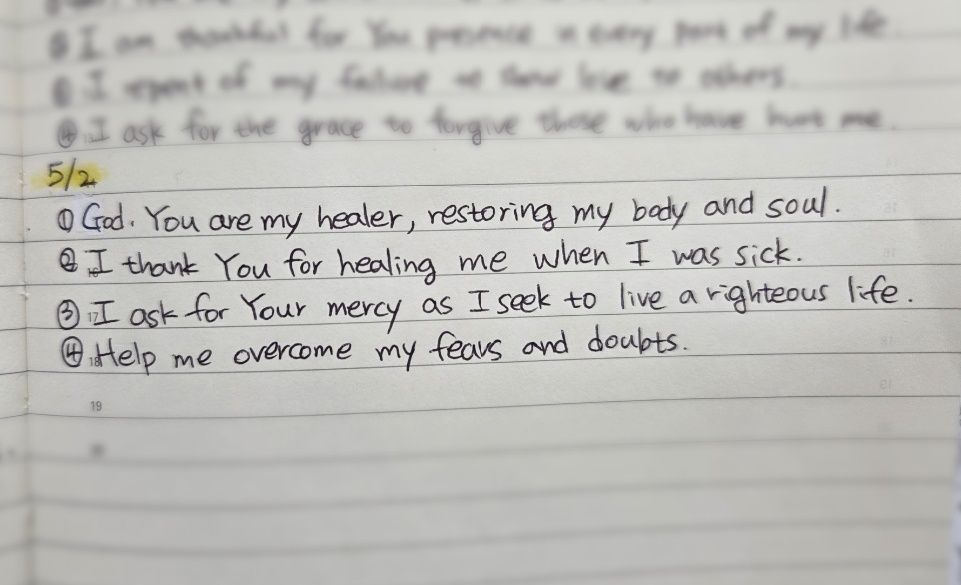 I am thankful for You presence in every part of my life.
I repent of my failure to show love to others.
④ I ask for the grace to forgive those who have hurt me.
5/2
① God. You are my healer, restoring my body and soul.
② I thank You for healing me when I was sick.
③ 17 I ask for Your mercy as I seek to live a righteous life.
④ 18 Help me overcome my fears and doubts.
19